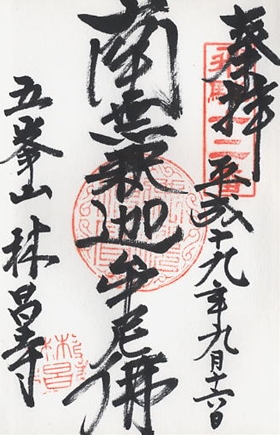 奉拝
平成十九年九月十六日
南無釈迦牟尼佛
五峯山 林昌寺